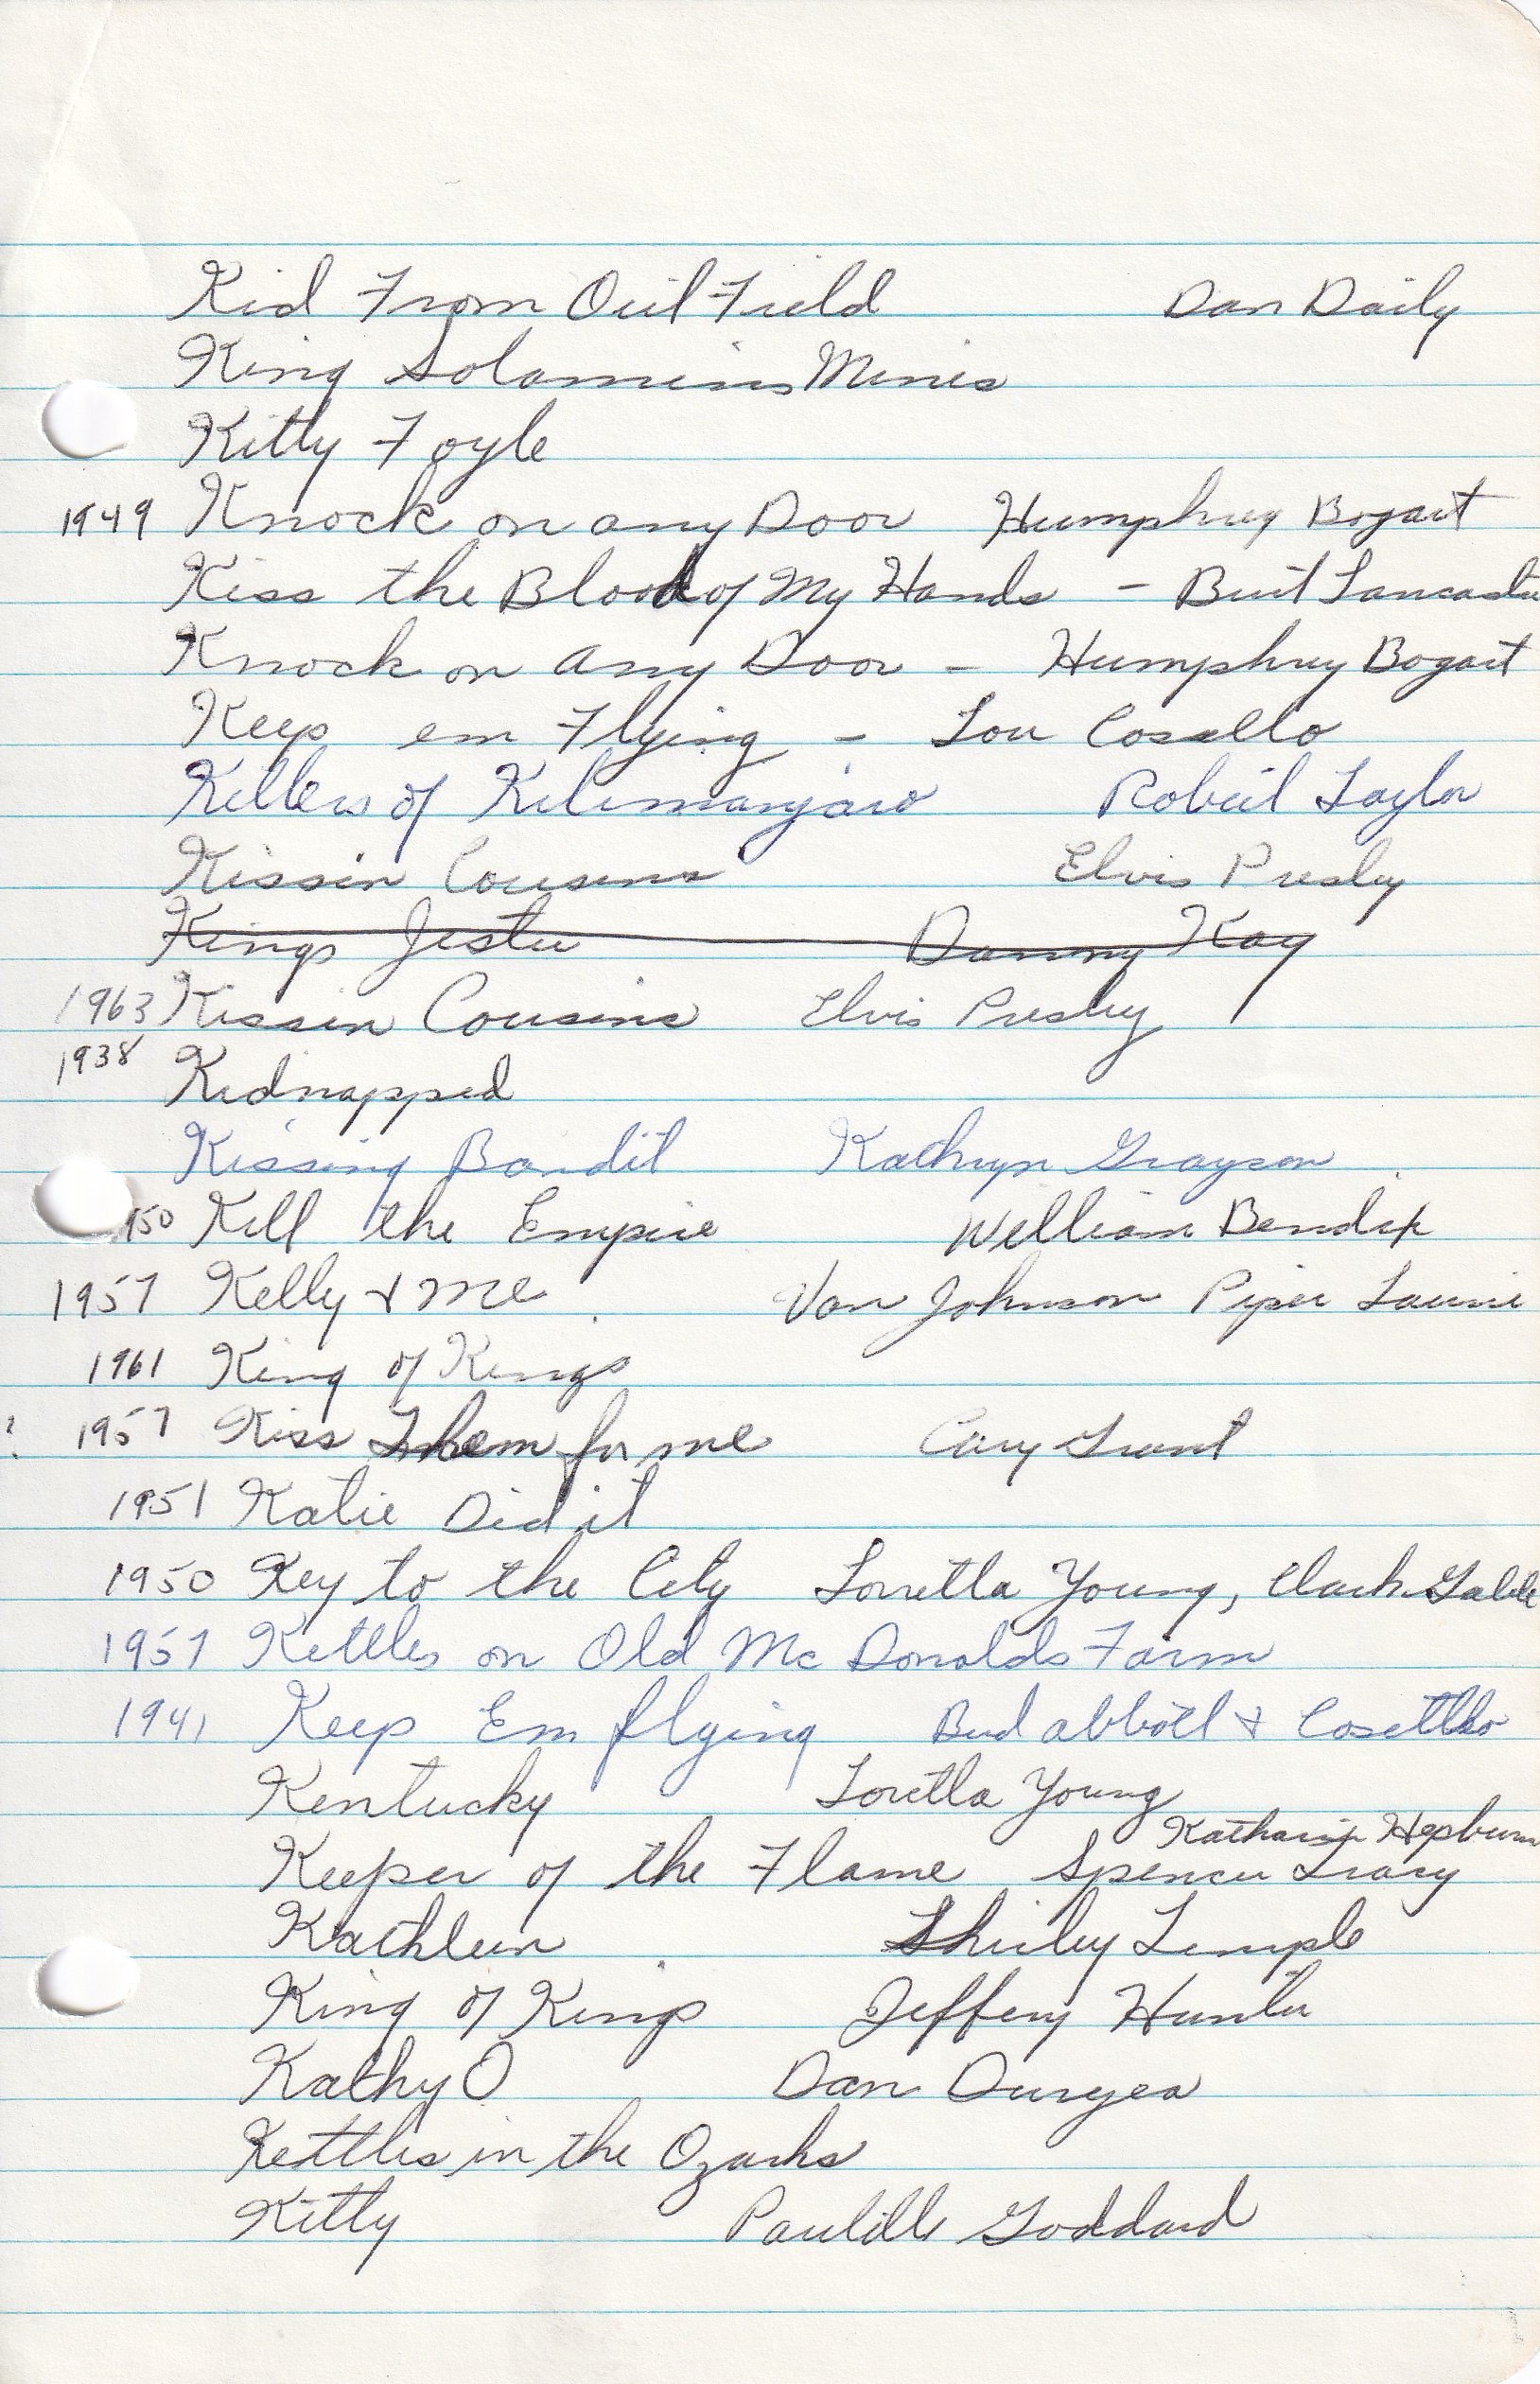 Kid From Oil Field Dan Daily
King Solomins Mines
Kitty Foyle
1949 Knock on any Door Humphrey Bogart
Kiss the Blood of My Hands - Burt Lancaster
Knock on any Door - Humphrey Bogart
Keep em Flying - Lou Cosello
Killers of Kilimanjaro Robert Taylor
Kissin Cousins Elvis Presley
Kings Jester Danny Kay
1963 Kissin Cousins Elvis Presley
1938 Kidnapped
Kissing Bandit Kathryn Grayson
950 Kill the Empire William Bendix
1957 Kelly & Me Van Johnson Piper Laurie
1961 King of Kings
? 1957 Kiss Them for me Cary Grant
1951 Katie Did it
1950 Key to the City Lorretta Young, Clark Gable
1957 Kettles on Old Mc Donalds Farm
1941 Keep Em flying Bud abbott & Cosetllo
Kentucky Loretta Young
Katharine Hepburn
Keeper of the Flame Spencer Tracy
Kathleen Shirley Temple
King of Kings Jeffery Hunter
Kathy O Dan Duryea
Kettles in the Ozarks
Kitty Paulette Goddard